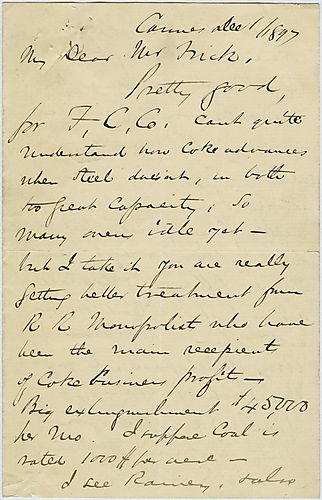 Cannes Dec 1/1897
My Dear Mr Frick,
Pretty good,
for F, C, Co. cant quite
understand how Coke advances
when Steel doesnt, in both
too great capacity, so
many ovens idle yet —
but I take it you are really
getting better treatment from
R R Monopolist who have
been the main recepient
of Coke business profit —
Big extinguishment $45,000
per mo. I suppose Coal is
rated 1000$ per acre —
I see Rainey, sales